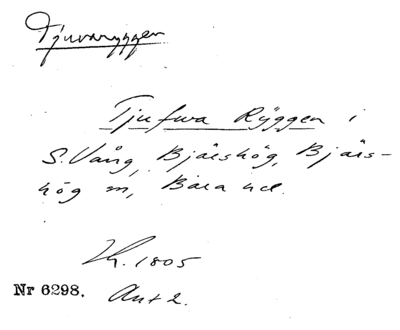 Tjuvaryggen
Tjufwa Rÿggen i
S. Vång, Bjärshög, Bjärs-
hög sn, Bara hd.
Lm. 1805
Nr 6298. Akt 2.